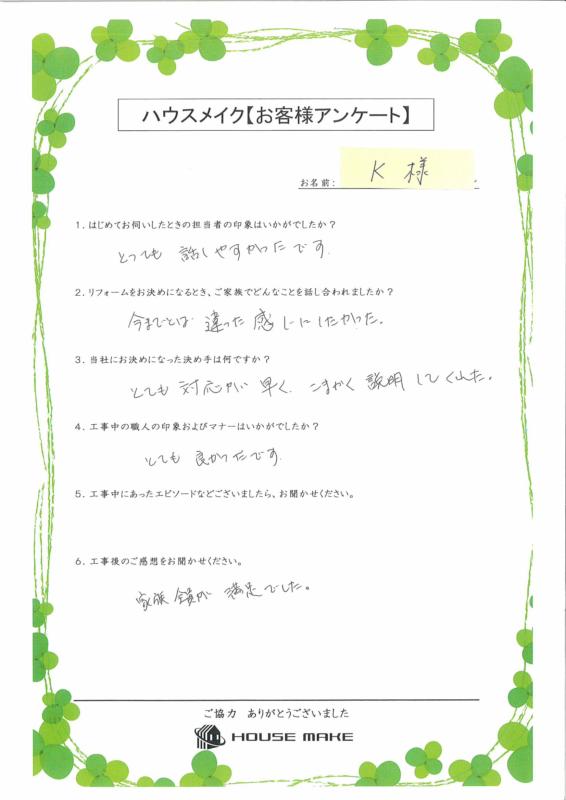 ハウスメイク【お客様アンケート】
お名前： K 様
1．はじめてお伺いしたときの担当者の印象はいかがでしたか？
とっても 話しやすかったです.
2．リフォームをお決めになるとき、ご家族でどんなことを話し合われましたか？
今までとは 違った 感じにしたかった。
3．当社にお決めになった決め手は何ですか？
とても 対応が 早く、こまかく 説明 してくれた。
4．工事中の職人の印象およびマナーはいかがでしたか？
とても 良かったです.
5．工事中にあったエピソードなどございましたら、お聞かせください。
6．工事後のご感想をお聞かせください。
家族 全員が 満足でした。
ご協力　ありがとうございました
HOUSE MAKE